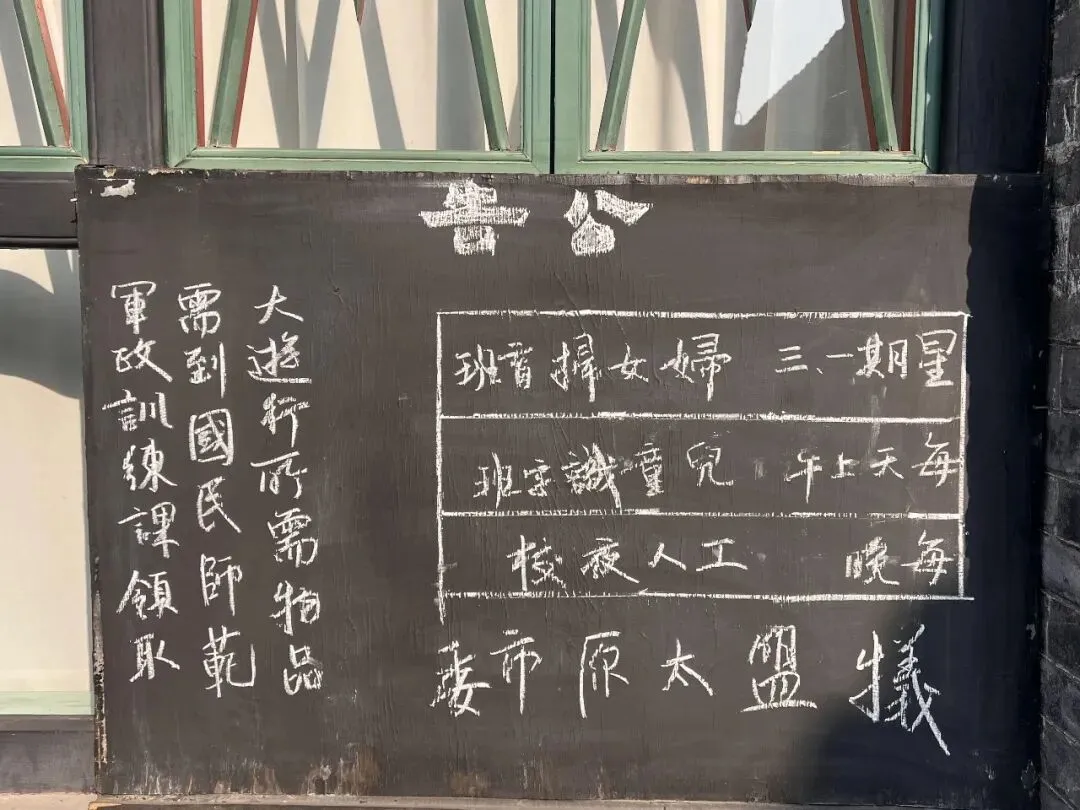 公告
星期一、三 婦女掃盲班
每天上午 兒童識字班
每晚 工人夜校
犠盟太原市委
大遊行所需物品
需到國民師範
軍政訓練課領取